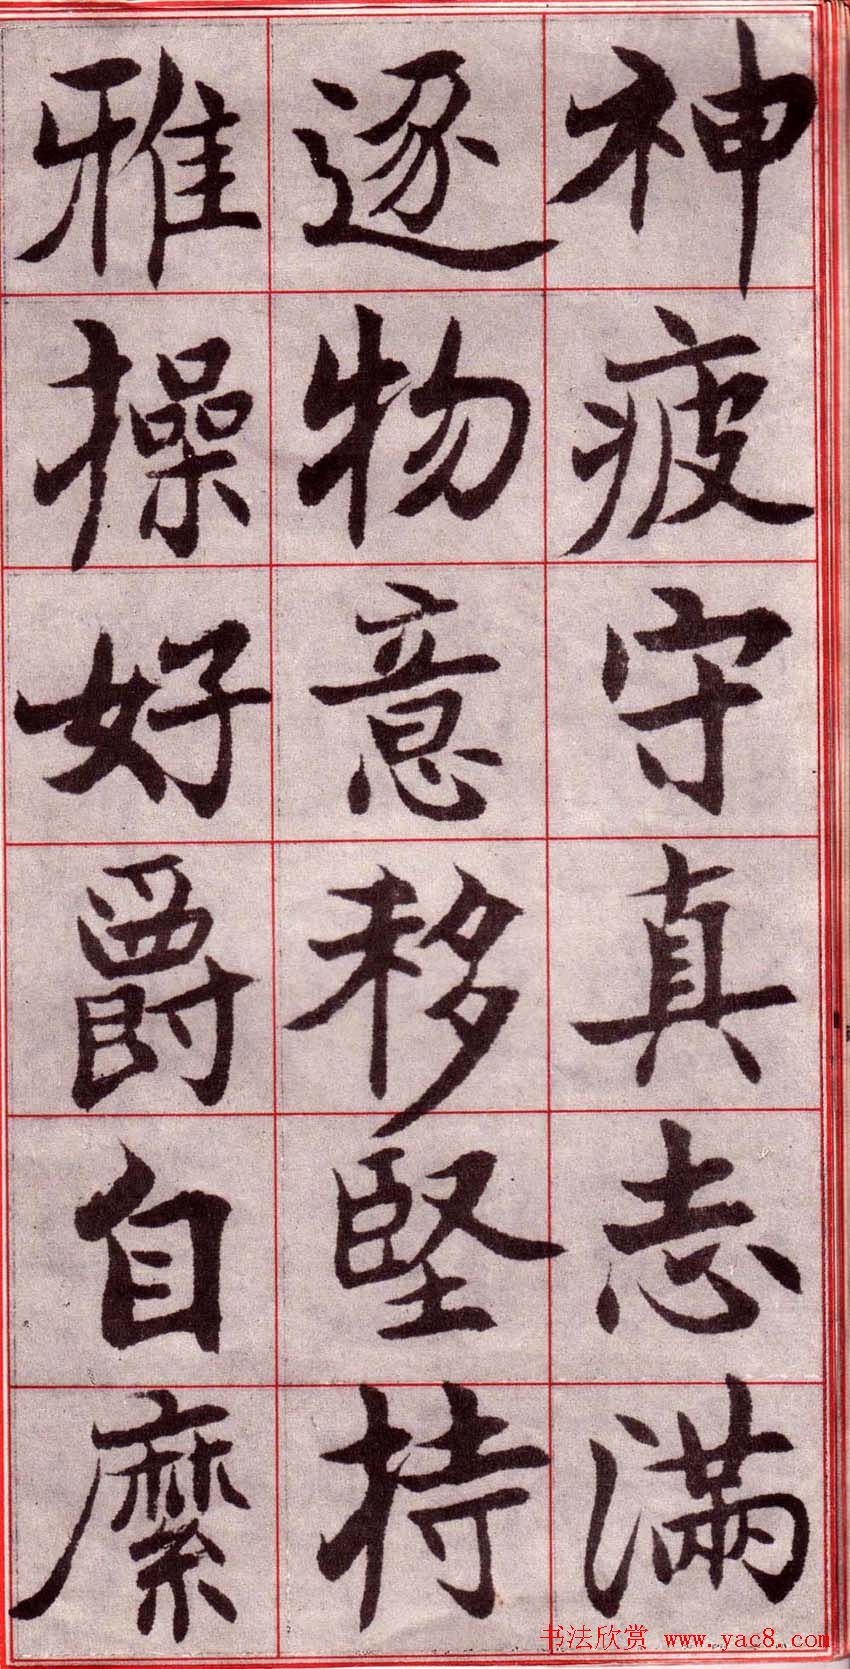 神疲守真志滿
逐物意移堅持
雅操好爵自縻
书法欣赏 www.yac8.com